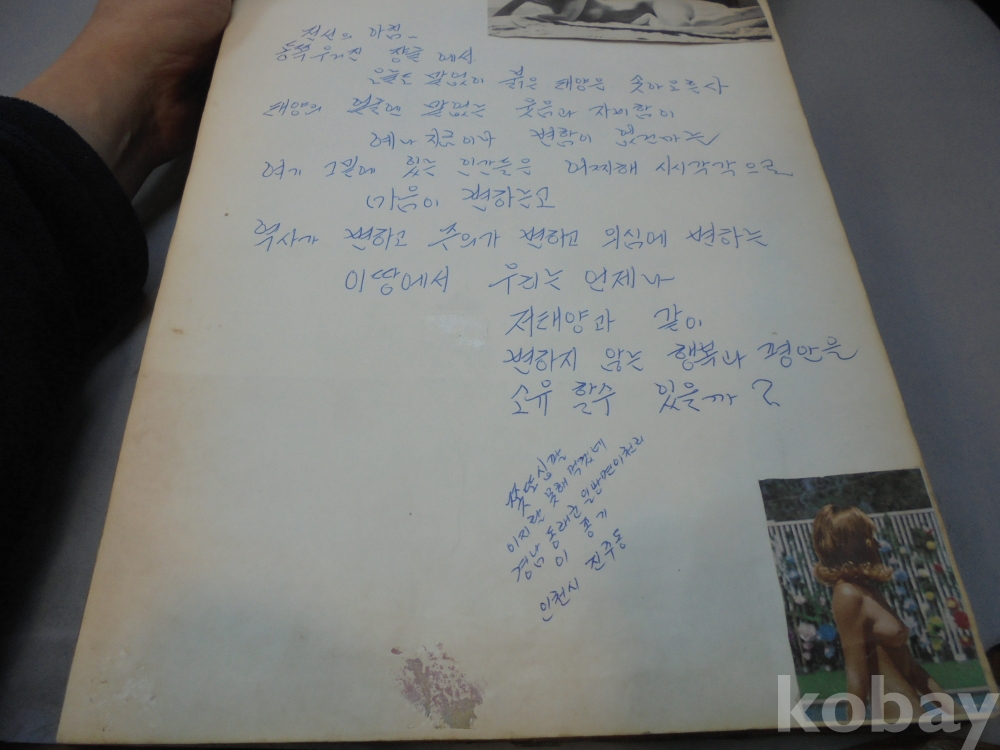 전선의 아침_
동쪽 우거진 쟝글에서
오늘도 말없이 붉은 태양은 솟아오른다
태양의 얼굴엔 말없는 웃음과 자비함이
예나 지금이나 변함이 없건마는
여기 그밑에 있는 인간들은 어찌해 시시각각으로
마음이 변하는고
역사가 변하고 주의가 변하고 의심에 변하는
이땅에서 우리는 언제나
저태양과 같이
변하지 않는 행복과 평안을
소유 할수 있을까?
이지랄 못해 먹겠네
경남 동래군 일광면 이천리
이 종기
인천시
kobay